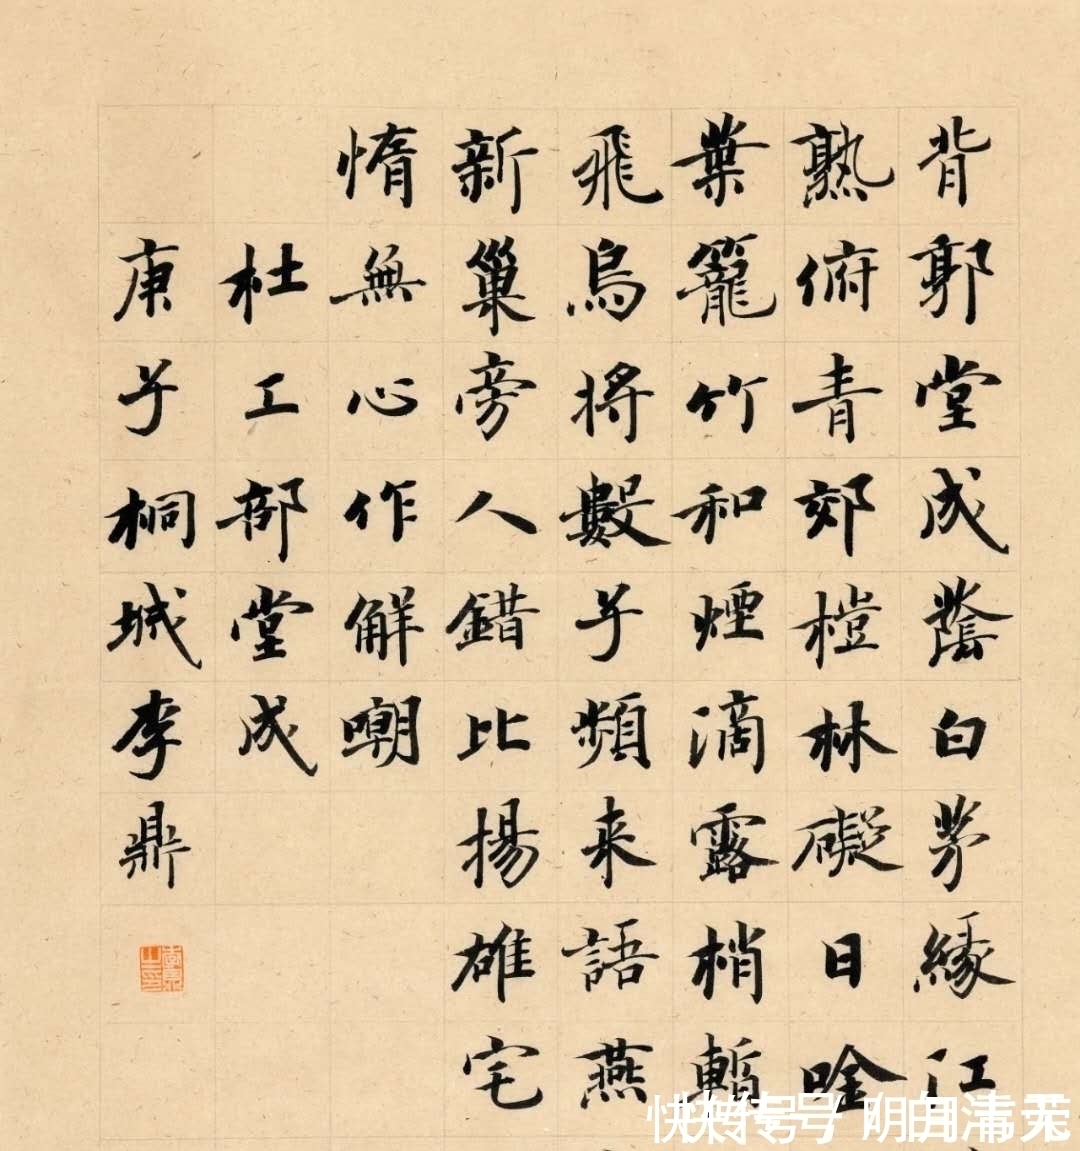 背郭堂成蔭白茅緣江
熟俯青郊榿林礙日唫
葉籠竹和煙滴露梢暫
飛烏將數子頻来語燕
新巢旁人錯比揚雄宅
惰無心作解嘲
杜工部堂成
庚子桐城李鼎